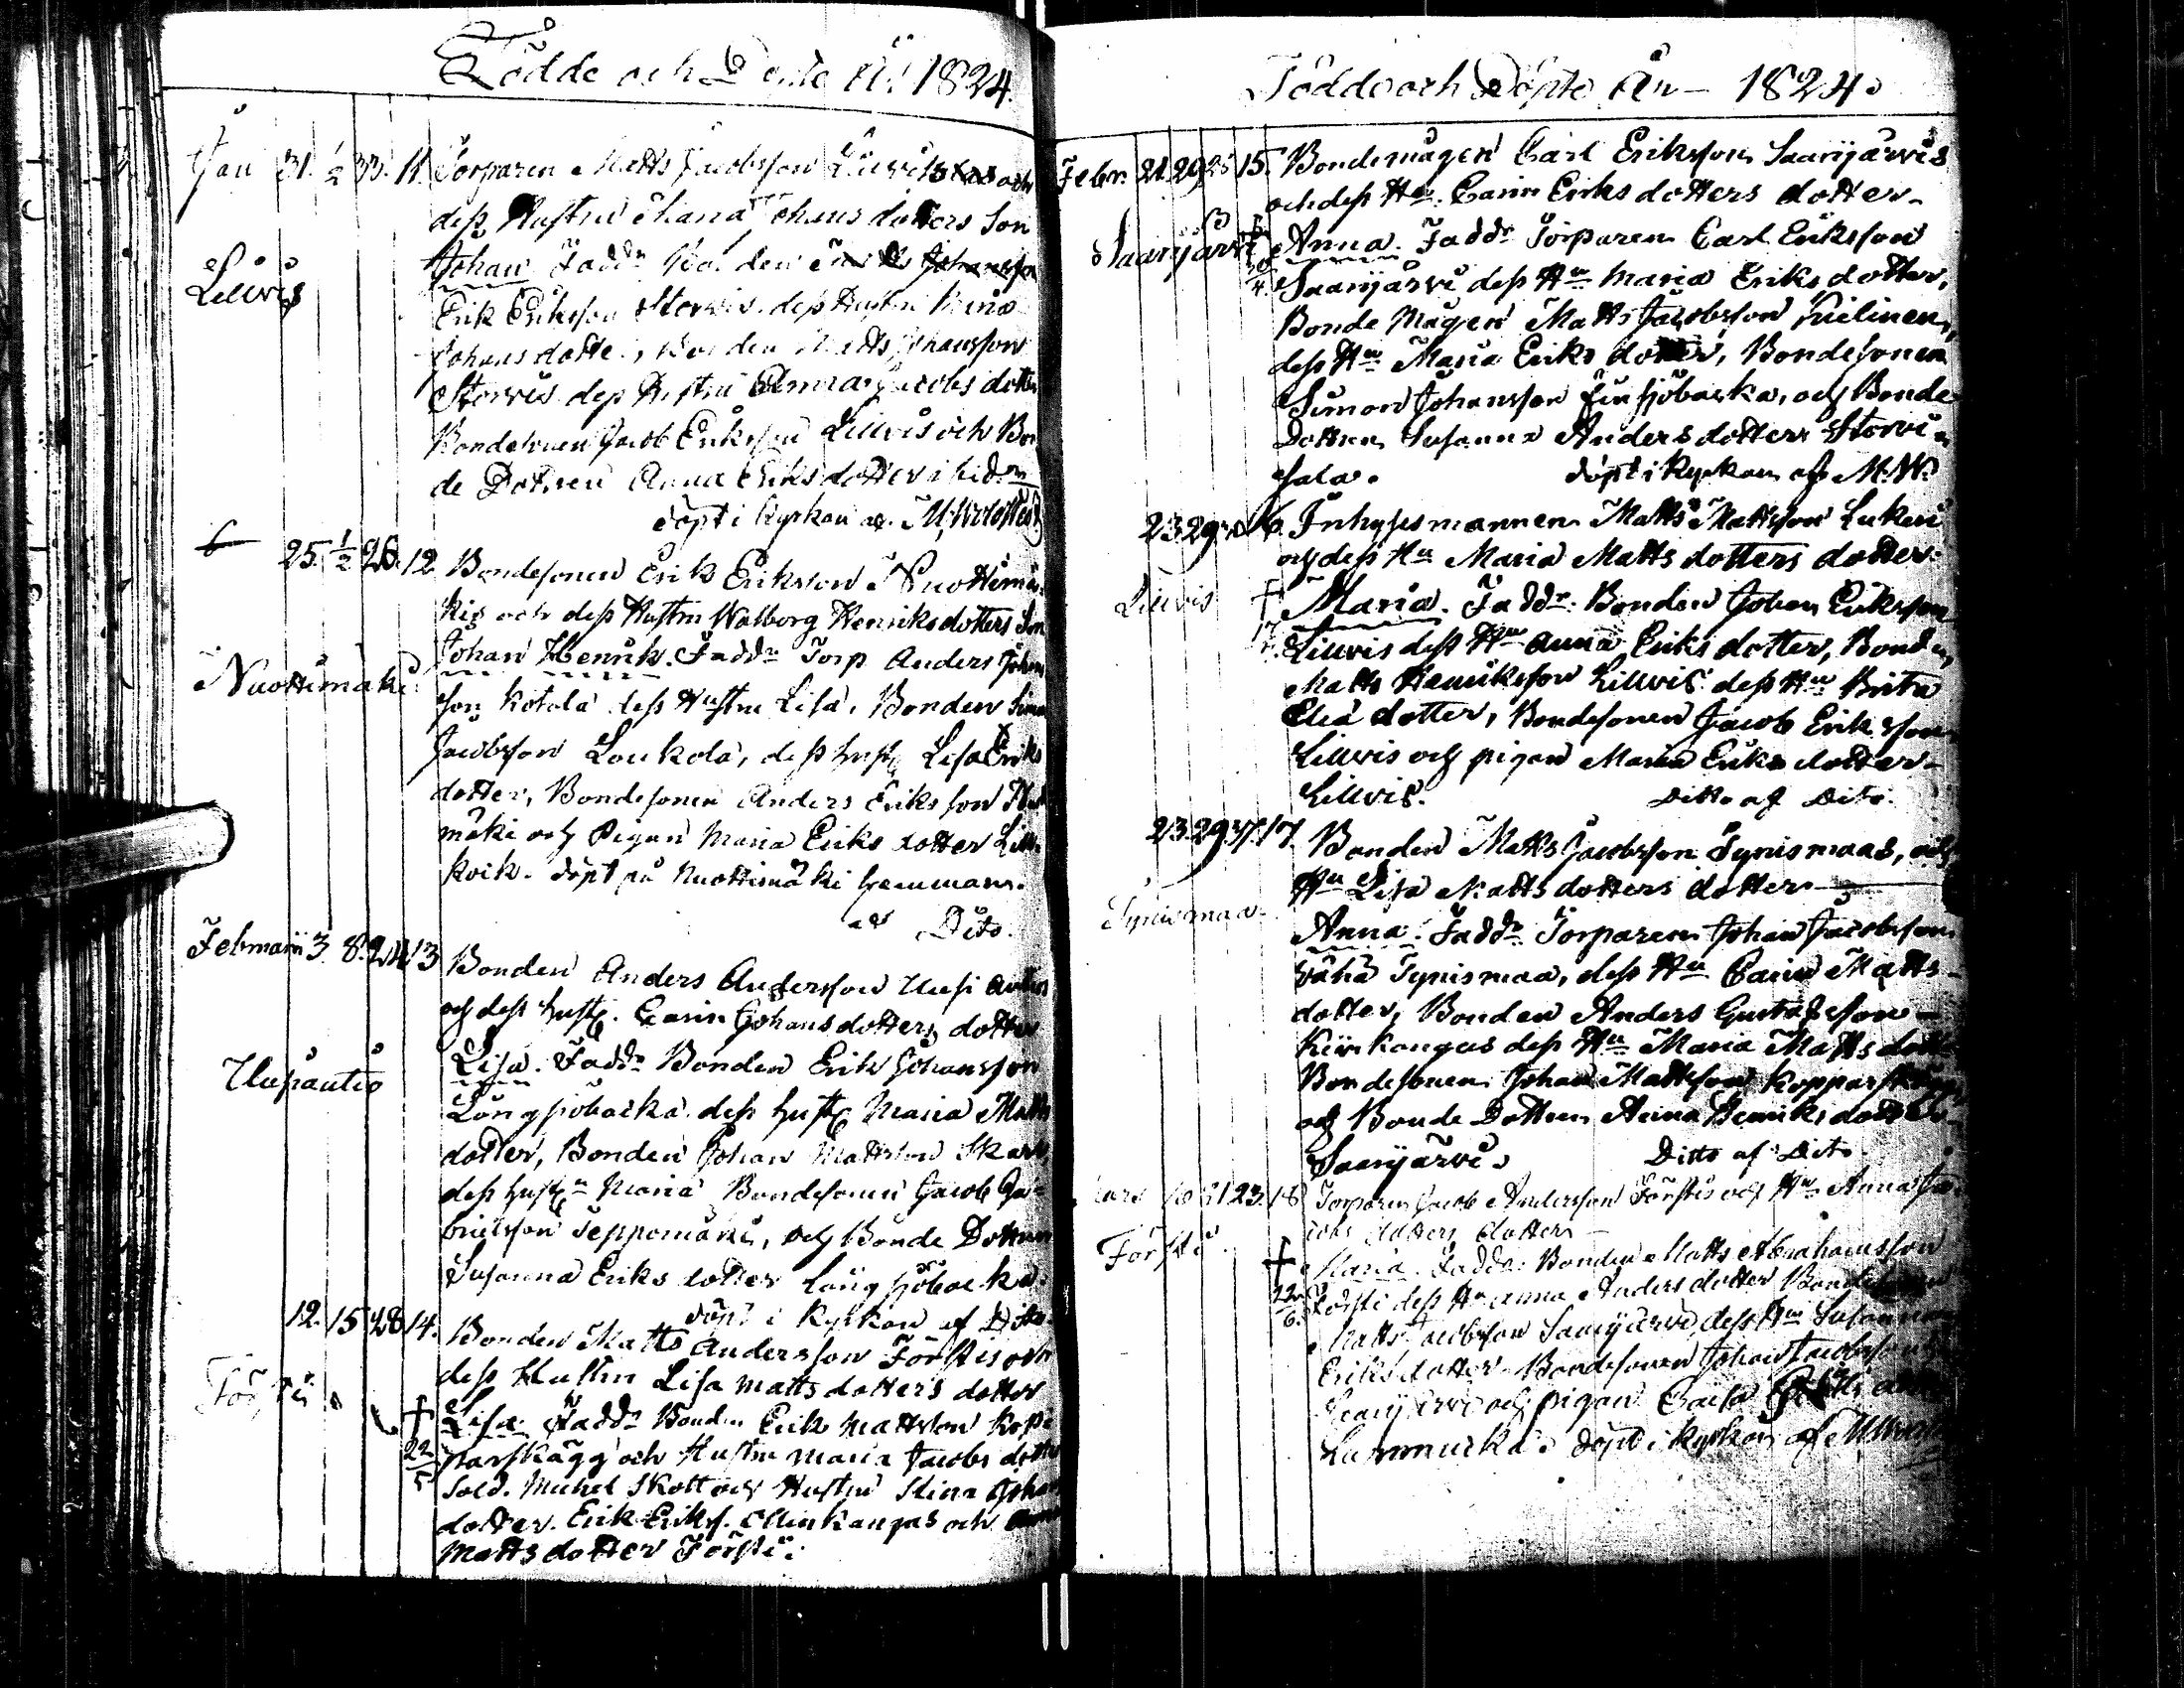 Födde och Döpte År 1824.
Jan 31. 1/2 33. 11. Torparen Matts Jacobsson Lillvis och
dess Hustru Maria Johans dotters Son
Johan Fadd:r Bonden
Lillvis
Erik Eriksson Storvis dess Hustru
Johans dotter, Bonden Matts Johansson
Storvis dess Hustru Anna Jacobs dotter
Bondesonen Jacob Eriksson Lillvis och Bon
de Dottren Anna Eriksdotter
döpt i Kyrkan af
25. 1/2 28. 12. Bondesonen Erik Eriksson Nuottimä-
kis och dess Hustru Walborg Henriksdotters Son
Johan Henrik. Fadd:r Torp Anders Johans
Nuottimäki
son Kotola dess Hustru Lisa, Bonden Simon
Jacobsson Loukola, dess hust: Lisa Eriks
dotter, Bondesonen Anders Eriksson
mäki och Pigan Maria Eriks dotter Lill-
kvik. döpt på Nuottimäki hemmans.
af Dito.
Februarii 3. 8. 24. 13 Bonden Anders Andersson Uusi autios
och dess hust: Carin Johansdotters dotter
Lisa. Fadd:r Bonden Erik Johansson
Uusiautio
Långsjöbacka dess hust: Maria Matts
dotter, Bonden Johan Mattsson
dess hust: Maria Bondesonen Jacob Ga-
brielsson Seppomäki, och Bonde Dottren
Susanna Eriks dotter Långsjöbacka.
döpt i Kyrkan af Dito.
12. 15 28 14. Bonden Matts Andersson Förstis och
dess Hustru Lisa Matts dotters dotter
Försti
† Lisa. Fadd:r Bonden Erik Mattsson Kop-
22/5 parskägg och Hustru Maria Jacobs dotter
Sold. Michel Skott och Hustru Stina Johans
dotter. Erik Eriks. Ollinkangas och Anna
Matts dotter Försti.
Födde och Döpte År 1824.
Febr. 21. 29. 25 15. Bondemågen Carl Eriksson Saarijärvis
och dess H:u Carin Eriks dotters dotter
Saarijärvi
† Anna. Fadd:r Torparen Carl Eriksson
Saarijärvi dess H:u Maria Eriks dotter,
Bonde Mågen Matts Jacobsson Kielinen,
dess H:u Maria Eriks dotter, Bondesonen
Simon Johansson Finsjöbacka, och Bonde
Dottren Susanna Anders dotter Storvi
sala. döpt i Kyrkan af M. W.
23. 29. 16. Inhysesmannen Matts Mattsson Lukus
och dess H:u Maria Matts dotters dotter
Lillvis
† Maria. Fadd:r Bonden Johan Eriksson
Lillvis dess H:u Anna Eriks dotter, Bonden
Matts Henriksson Lillvis dess H:u Brita
Elia dotter, Bondesonen Jacob Eriksson
Lillvis och pigan Maria Eriks dotter
Lillvis. Ditto af Dito.
23. 29. 37. 17. Bonden Matts Jacobsson Tynismaas, och
H:u Lisa Matts dotters dotter
Tynismaa
Anna. Fadd:r Torparen Johan Jacobsson
Vähä Tynismaa, dess H:u Carin Matts
dotter, Bonden Anders Gustafsson
Kiviskangas dess H:u Maria Matts dotter
Bondesonen Johan Mattsson Kopparskägg
och Bonde Dottren Anna Henriks dotter
Saarijärvi. Ditto af Dito.
Mars 21 23. 18 Torparen Jacob Andersson Förstis och H:u Anna Ja-
cobs dotters dotter
Försti
† Maria. Fadd:r Bonden Matts Abrahamsson
22/6. Försti dess H:u Anna Anders dotter Bonde
Matts Jacobsson Saarijärvi, dess H:u Susanna
Eriks dotter Bondesonen Johan Jacobsson
Saarijärvi och pigan Caisa
döpt i kyrkan af